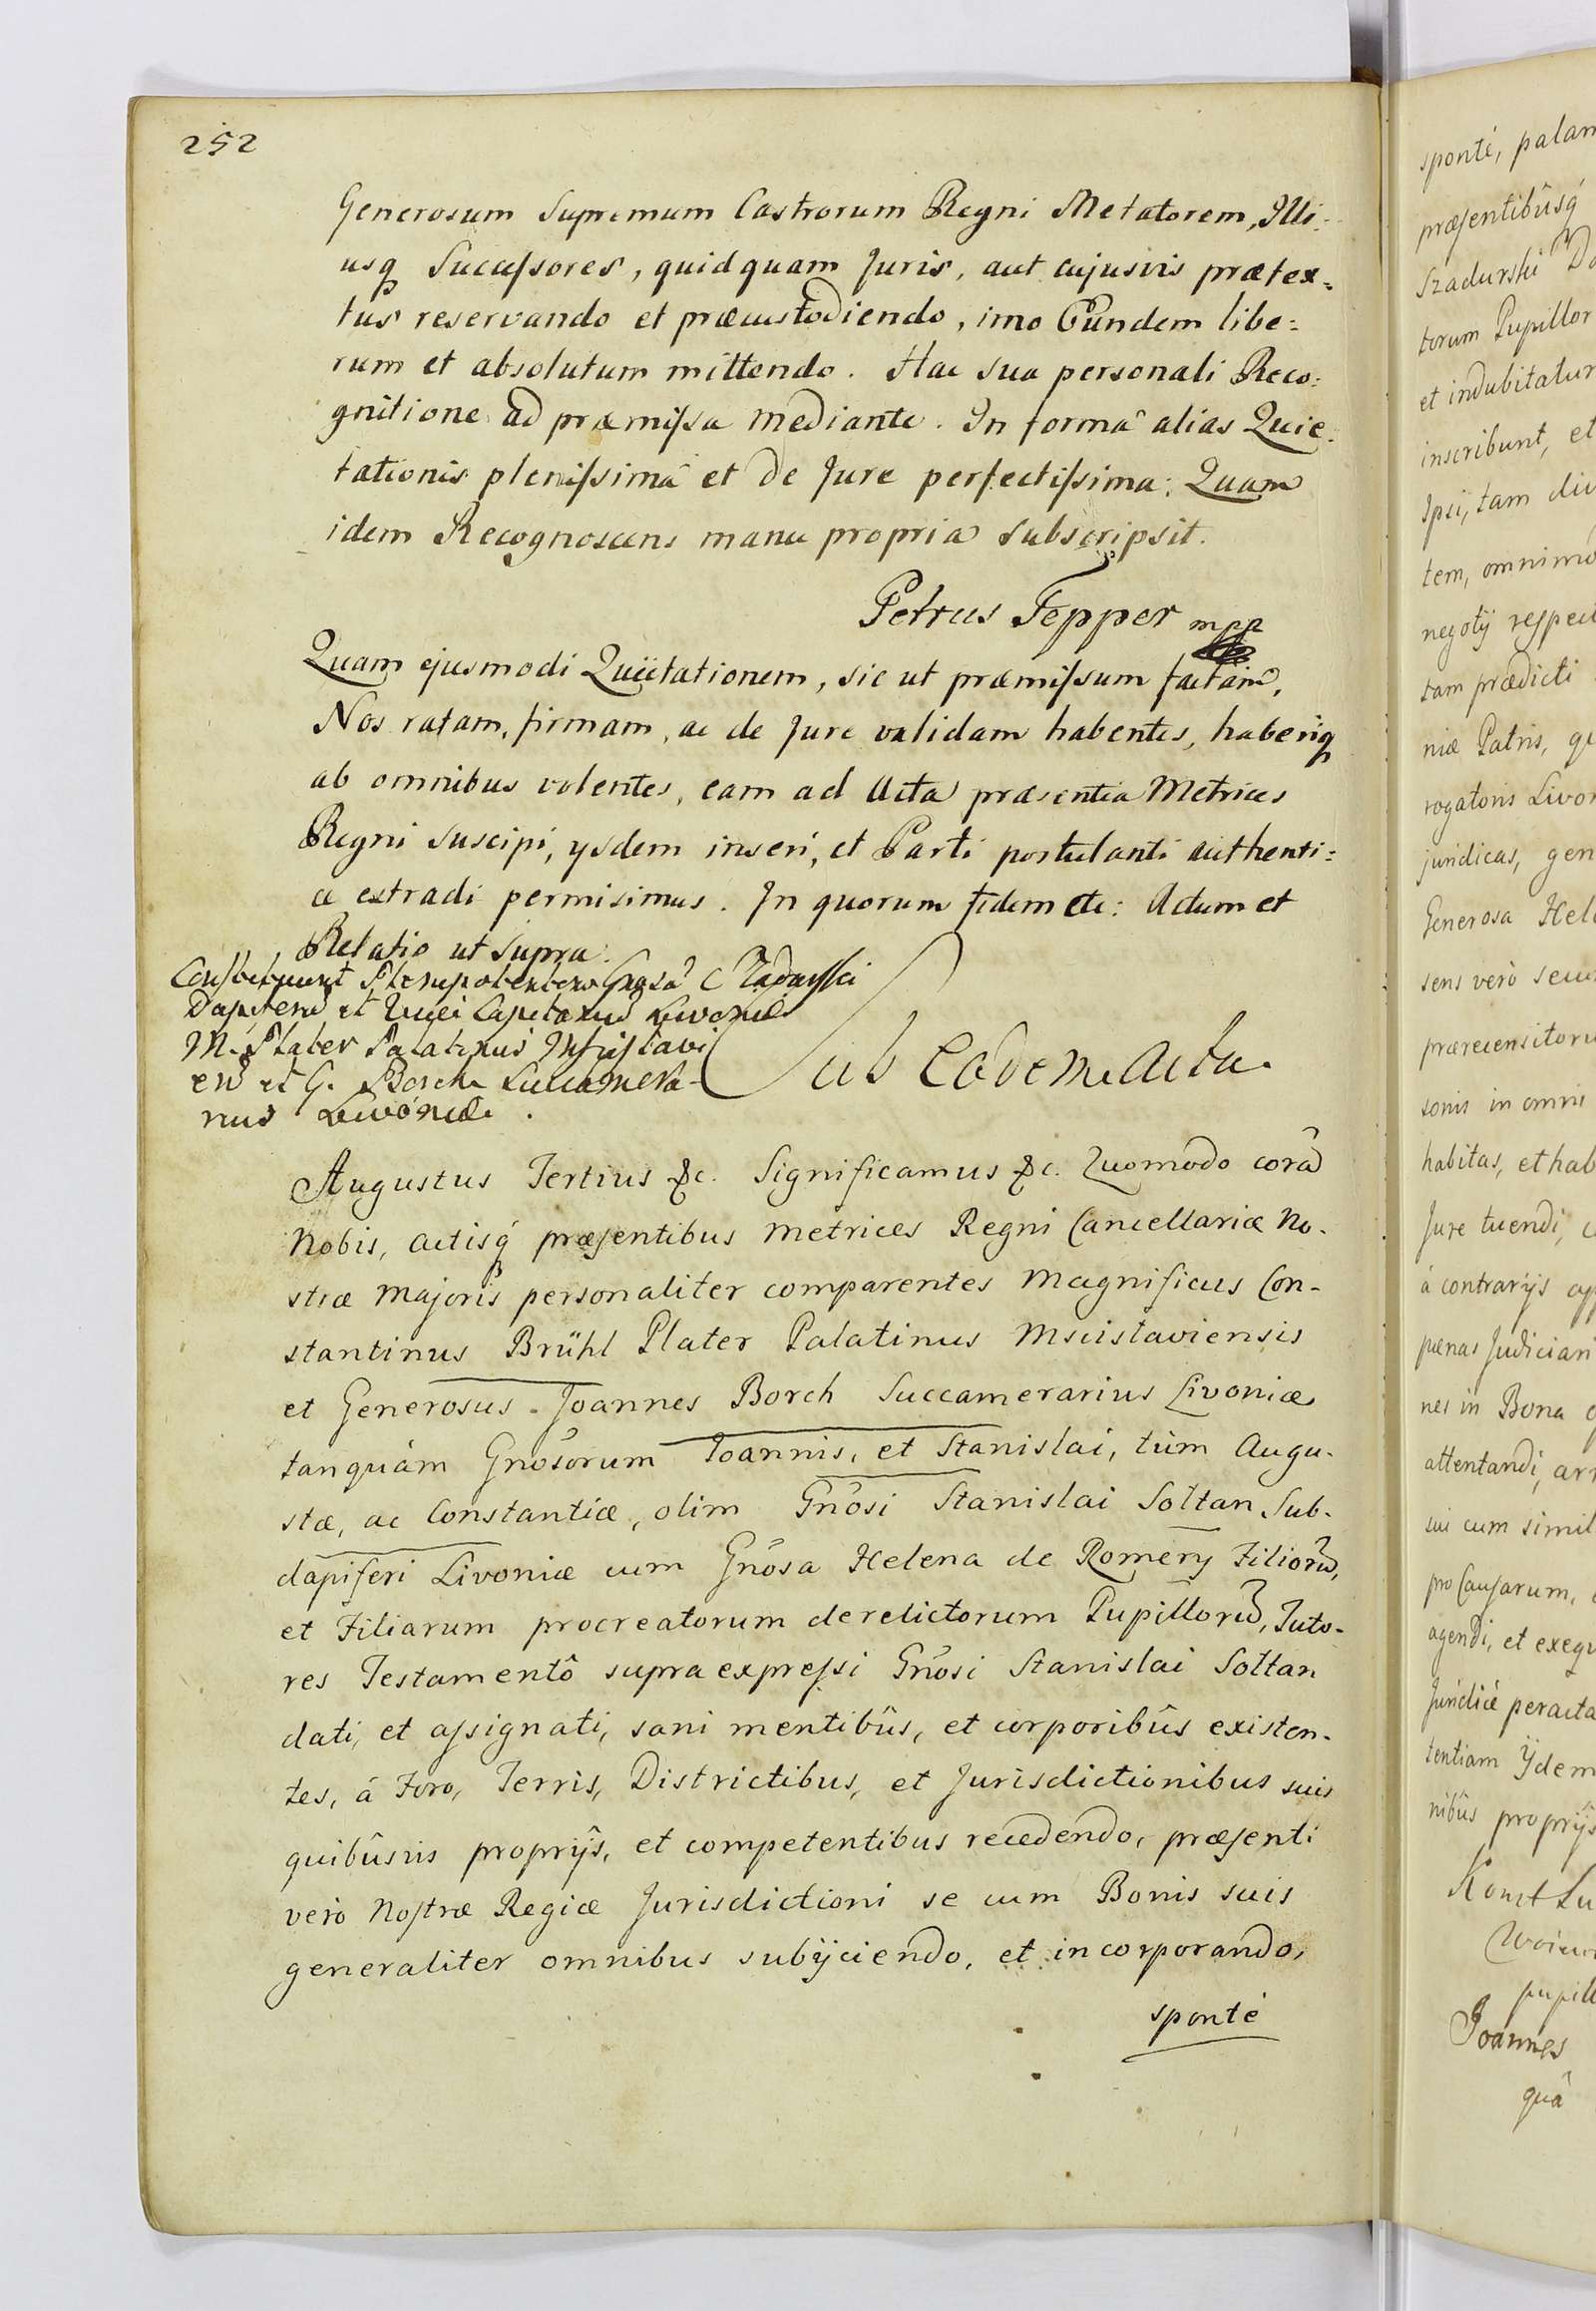 252
Generosum Supremum Castrorum Regni Metatorem, Illi:
usq Succeſsores, quidquam Juris, aut cujusvis prætex:
tus reservando et præcustodiendo, imo Eundem libe:
rum et absolutum mittendo. Hac sua personali Reco:
gnitione ad præmiſsa mediante. In formâ alias Quie:
tationis pleniſsimâ et de Jure perfectiſsima: Quam
idem Recognoscens manu propria subscripsit.
Petrus Tepper mpp
Quam ejusmodi Quietationem, sic ut præmiſsum factam,
Nos ratam, firmam, ac de Jure validam habentes, haberiq
ab omnibus volentes, eam ad Acta præsentia Metrices
Regni suscipi, ysdem inseri, et Parti postulanti authenti:
ce extradi permisimus. In quorum fidem etc: Actum et
Relatio ut supra.
Constituunt Plenipotentem Gnosũ
Dapiferũ et Capitaneũ Livoniæ
M. Plater Palatinus Mscislavi
en et G. Borch Succamera-
rius Livoniæ.
Sub Eadem Acta.
Augustus Tertius &c. Significamus &c. Quomodo corã
Nobis, actisq́ præſentibus metrices Regni Cancellariæ No-
stræ Majoris personaliter comparentes Magnificus Con-
stantinus Brühl Plater Palatinus Mscislaviensis
et Generosus Joannes Borch Succamerarius Livoniæ
tanquàm Gnõsorum Joannis, et Stanislai, tùm Augu-
stæ, ac Constantiæ, olim Gnõsi Stanislai Soltan Sub-
dapiferi Livoniæ cum Gnõsa Helena de Romery Filiorũ,
et Filiarum procreatorum derelictorum Pupillorũ, Tuto-
res Testamentô supra expreſsi Gnõsi Stanislai Soltan
dati, et aſsignati, sani mentibûs, et corporibûs existen-
tes, á Foro, Terris, Districtibus, et Jurisdictionibus suis
quibûsvis proprijs, et competentibus recedendo, præſenti
verò Noſtræ Regiæ Jurisdictioni se cum Bonis suis
generaliter omnibus subijciendo, et incorporando,
spontè
spontè, palam
præſentibûsq́
Szadurski
torum Pupillor
et indubitatum
inscribunt, et
Ipsi, tam div
tem, omnimo
negotij reſpect
tam prædicti
niæ Patris, qu
rogatoris Livon
juridicas, gen
Generosa Hel
sens verò secu
prærecensitoru
sonis in omni
habitas, et hab
Jure tuendi, c
á contrarijs
pænas Judiciari
nes in Bona
attentandi, arr
sui cum simil
pro Cauſarum,
agendi, et exequ
Juridicè peracta
tentiam Ijdem
nibûs proprijs
Konst Lu
pupill
Joannes
quâ